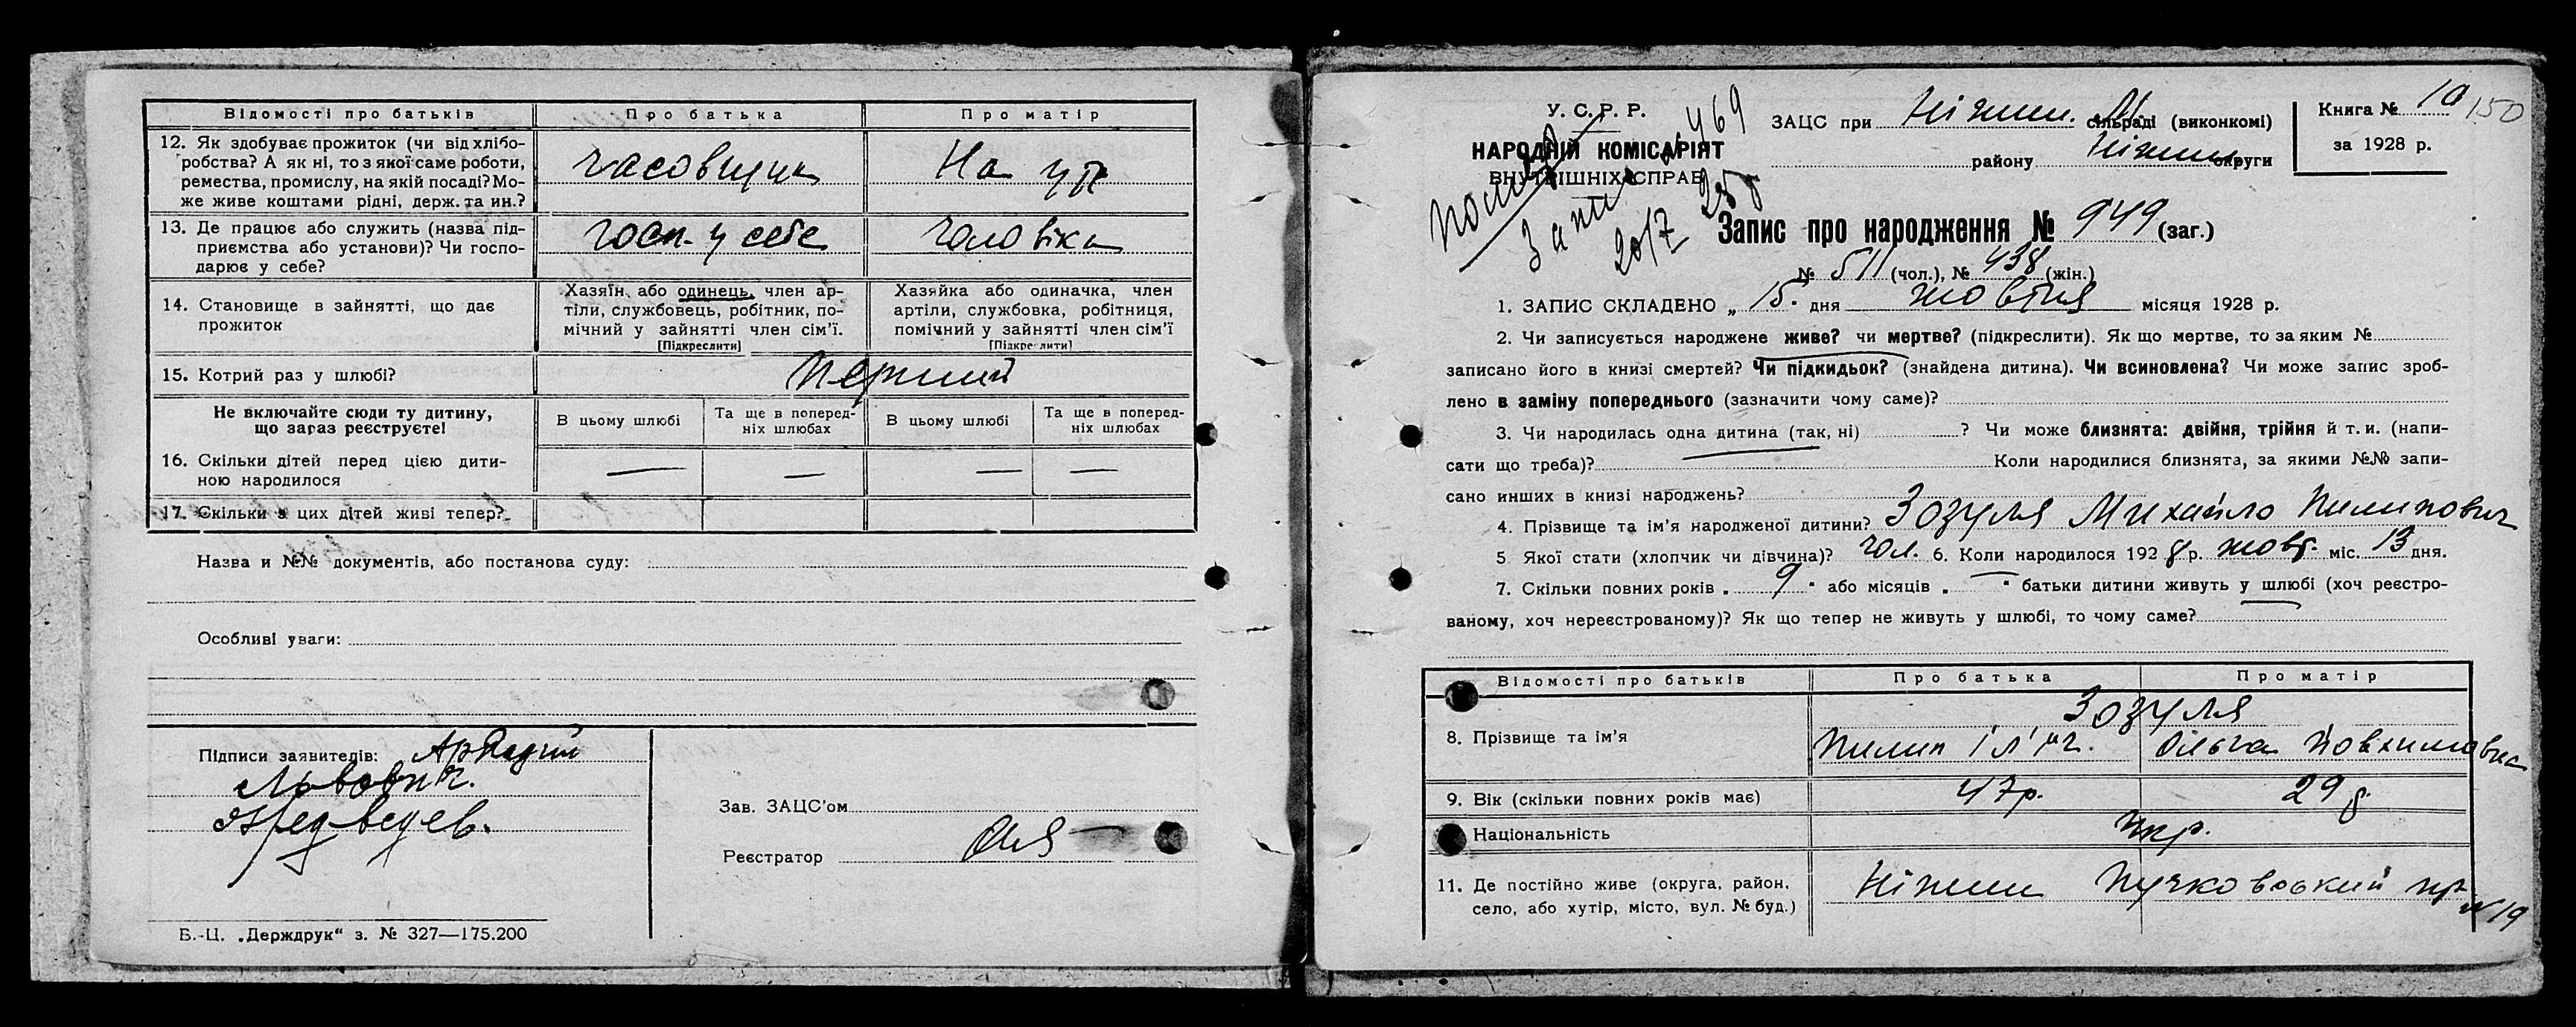 Відомості про батьків
Про батька
Про матір
12. Як здобуває прожиток (чи від хлібо-
робства? А як ні, то з якої саме роботи,
ремества, промислу, на якій посаді? Мо-
же живе коштами рідні, держ. та ин.?
часовщик
На ут
13. Де працює або служить (назва під-
приємства або установи)? Чи госпо-
дарює у себе?
госп. у себе
чоловіка
14. Становище в зайнятті, що дає
прожиток
Хазяїн або одинець, член ар-
тілі, службовець, робітник, по-
мічний у зайнятті член сім'ї.
[Підкреслити]
Хазяйка або одиначка, член
артілі, службовка, робітниця,
помічний у зайнятті член сім'ї
[Підкреслити]
15. Котрий раз у шлюбі?
перший
Не включайте сюди ту дитину,
що зараз реєструєте!
В цьому шлюбі
Та ще в поперед-
ніх шлюбах
В цьому шлюбі
Та ще в поперед-
ніх шлюбах
16. Скільки дітей перед цією дити-
ною народилося
— — — —
17. Скільки з цих дітей живі тепер?
Назва и №№ документів, або постанова суду:
Особливі уваги:
Підписи заявителів: Аркадий
Львович
Медведев.
Зав. ЗАЦС'ом
Реєстратор
Б.-Ц. „Держдрук“ з. № 327—175.200
У. С. Р. Р.
НАРОДНІЙ КОМІСАРІЯТ
ВНУТРІШНІХ СПРАВ
469
ЗАЦС при Ніжин. М. сільраді (виконкомі)
району Ніжин округи
Книга № 10
150
за 1928 р.
Запис про народження № 949 (заг.)
№ 511 (чол.), № 438 (жін.)
1. ЗАПИС СКЛАДЕНО „ 15. дня жовтня місяця 1928 р.
2. Чи записується народжене живе? чи мертве? (підкреслити). Як що мертве, то за яким №
записано його в книзі смертей? Чи підкидьок? (знайдена дитина). Чи всиновлена? Чи може запис зроб-
лено в заміну попереднього (зазначити чому саме)?
3. Чи народилась одна дитина (так, ні) ? Чи може близнята: двійня, трійня й т. и. (напи-
сати що треба)? Коли народилися близнята, за якими №№ запи-
сано инших в книзі народжень?
4. Прізвище та ім'я народженої дитини? Зозуля Михайло Пилипович
5 Якої стати (хлопчик чи дівчина)? чол. 6. Коли народилося 192 8 р. жовт. міс. 13 дня.
7. Скільки повних років „ 9 “ або місяців „ — “ батьки дитини живуть у шлюбі (хоч реєстро-
ваному, хоч нереєстрованому)? Як що тепер не живуть у шлюбі, то чому саме?
Відомості про батьків
Про батька
Про матір
8. Прізвище та ім'я
Зозуля
Пилип Ілʼіч.
Ольга Йовхимовна
9. Вік (скільки повних років має)
47р.
29 р.
Національність
Укр.
11. Де постійно живе (округа, район,
село, або хутір, місто, вул. № буд.)
Ніжин Пучковський пр
№ 19